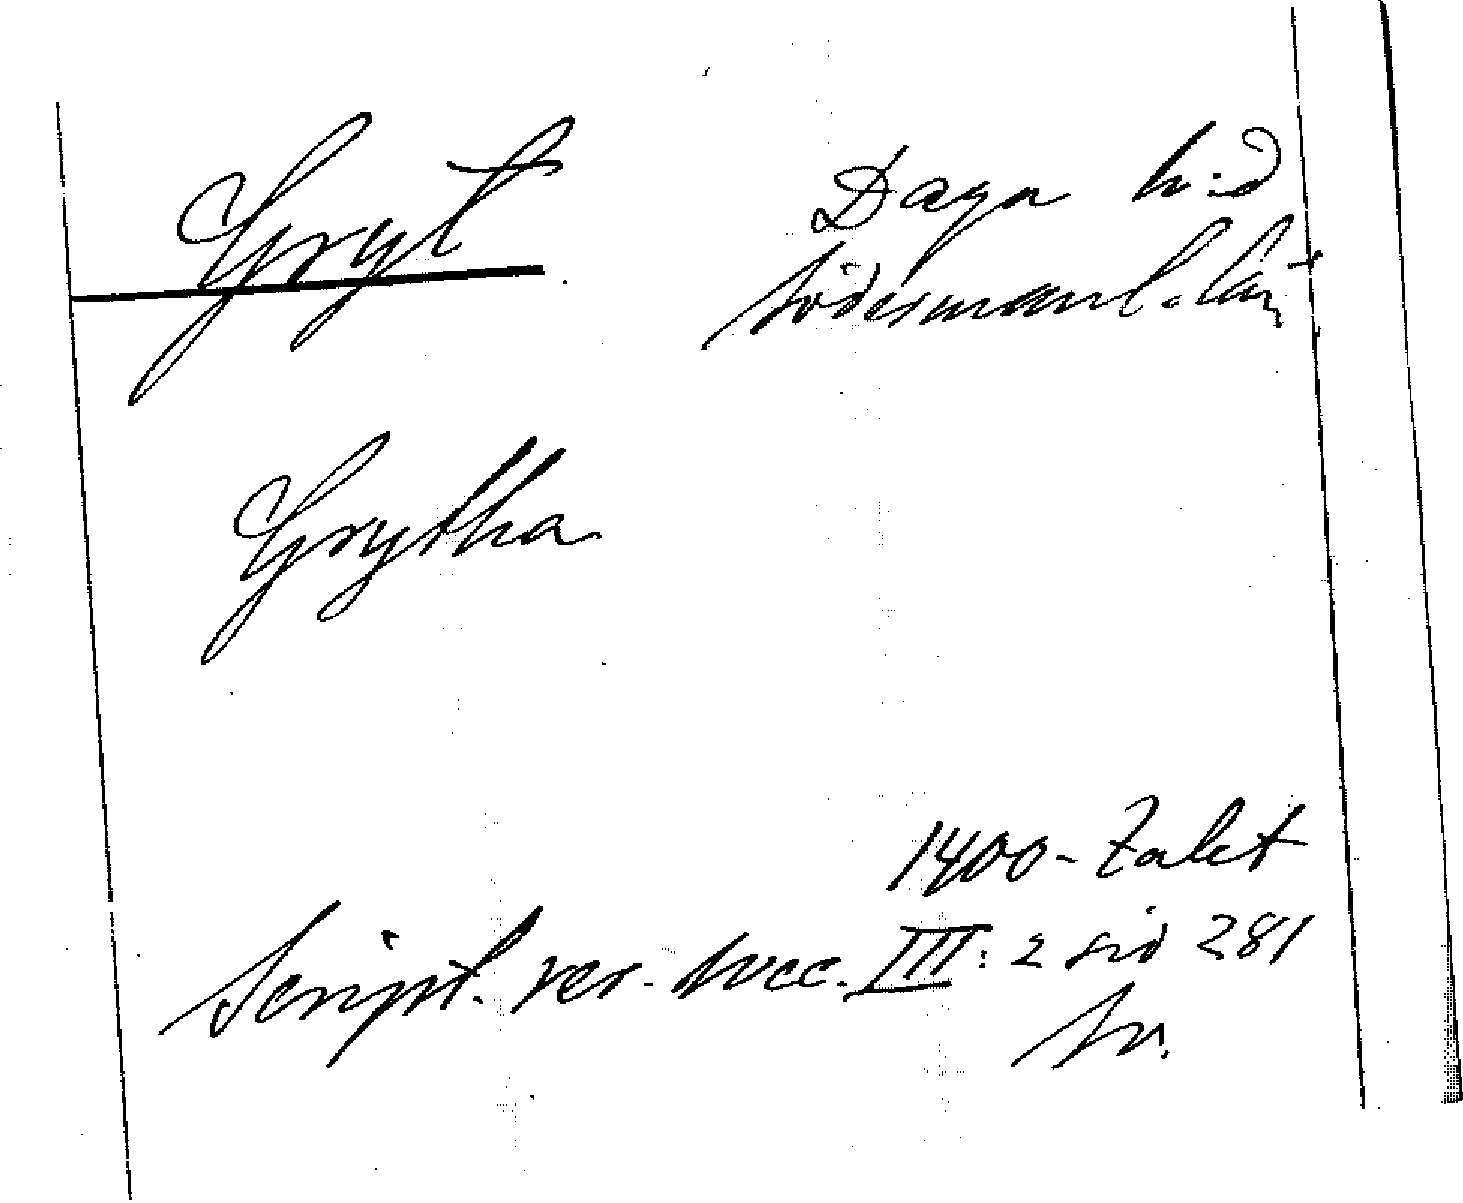 Gryt Daga h:d
Södermanl. län
Grytha
1400-talet
Script. rer. svec. III: 2 sid 281
Sv.